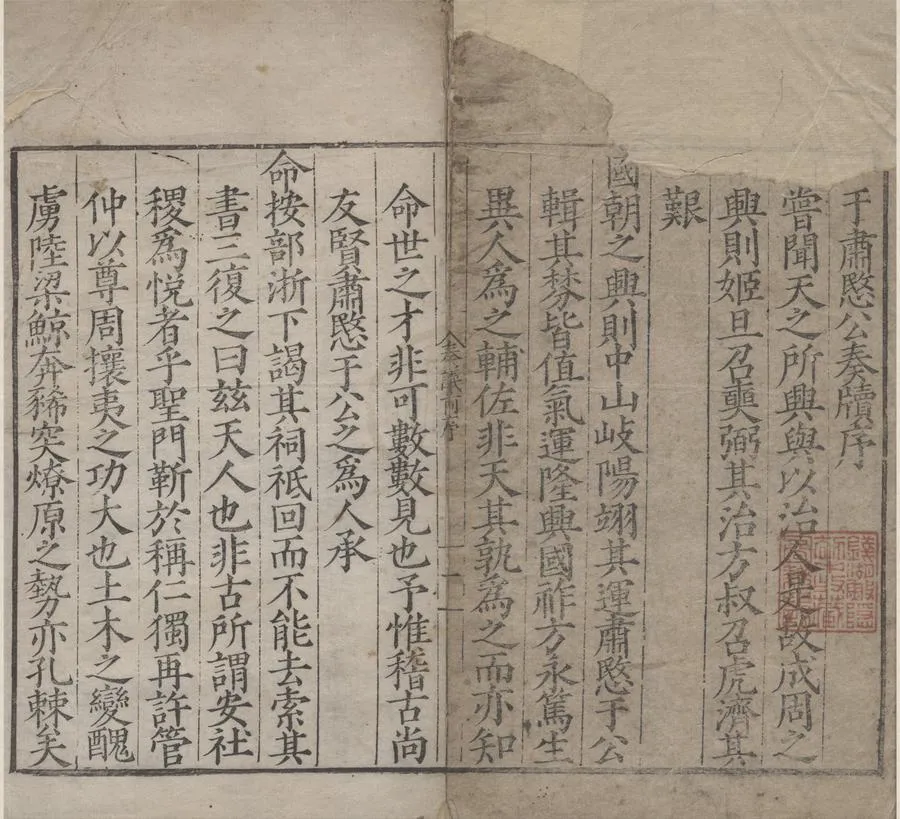 于肅愍公奏牘序
嘗聞天之所興與以治人是故成周之
興則姬旦召奭弼其治方叔召虎濟其
艱
國朝之興則中山岐陽翊其運肅愍于公
輯其棼皆值氣運隆興國祚方永篤生
異人爲之輔佐非天其孰爲之而亦知
奏議前序
一
命世之才非可數數見也予惟稽古尚
友賢肅愍于公之爲人承
命按部浙下謁其祠祇回而不能去索其
書三復之曰玆天人也非古所謂安社
稷爲悅者乎聖門靳於稱仁獨再許管
仲以尊周攘夷之功大也土木之變醜
虜陸梁鯨奔豨突燎原之勢亦孔棘矣